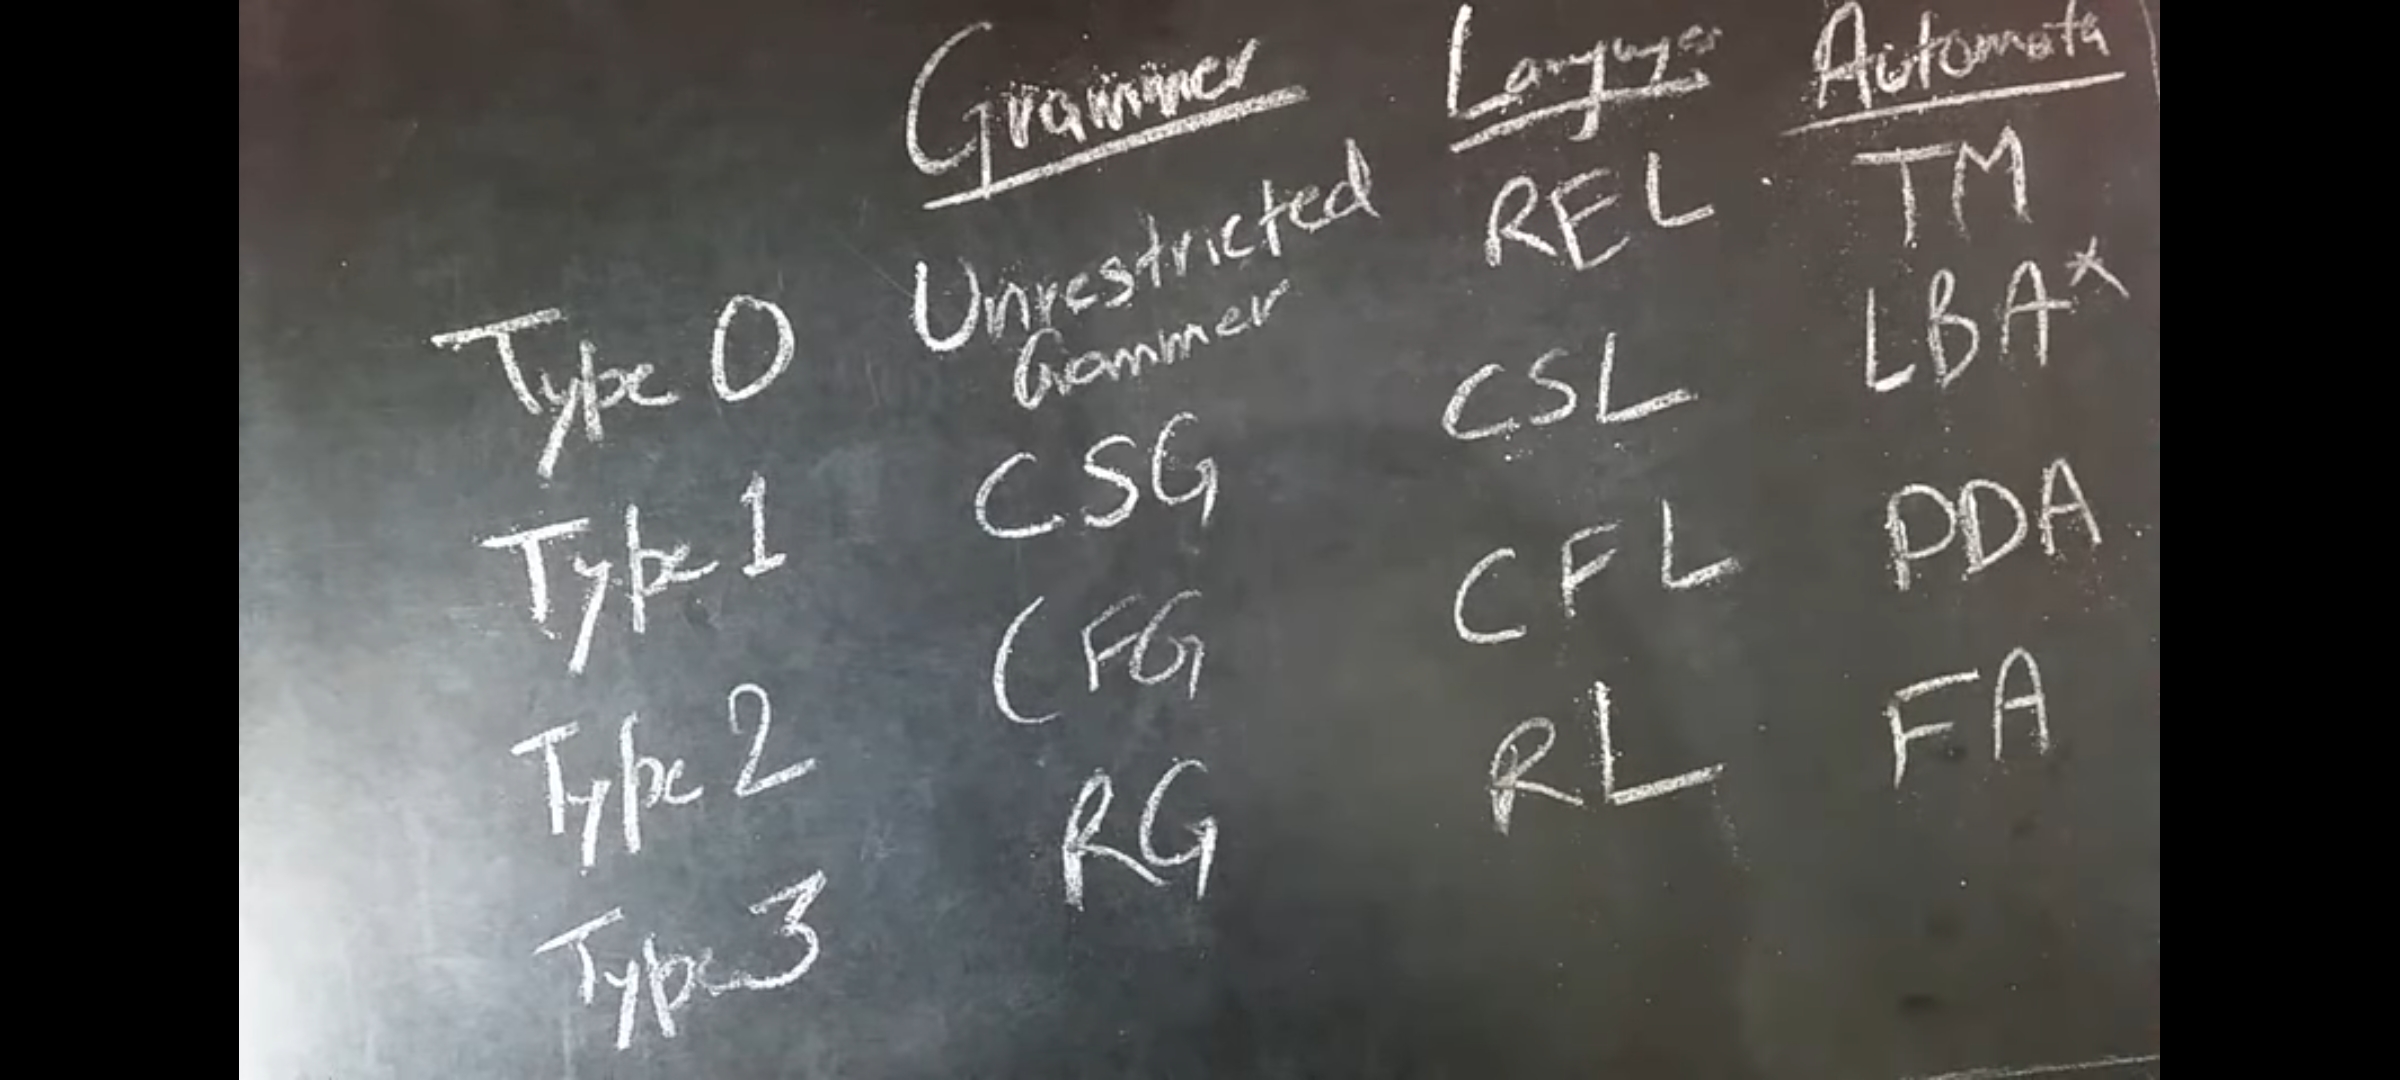 Grammer Languages Automata
Type 0 Unrestricted Grammer REL TM
Type 1 CSG CSL LBA*
Type 2 CFG CFL PDA
Type 3 RG RL FA